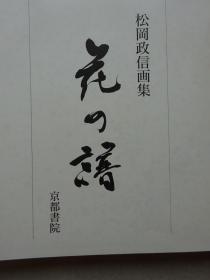 松岡政信画集
花の譜
京都書院